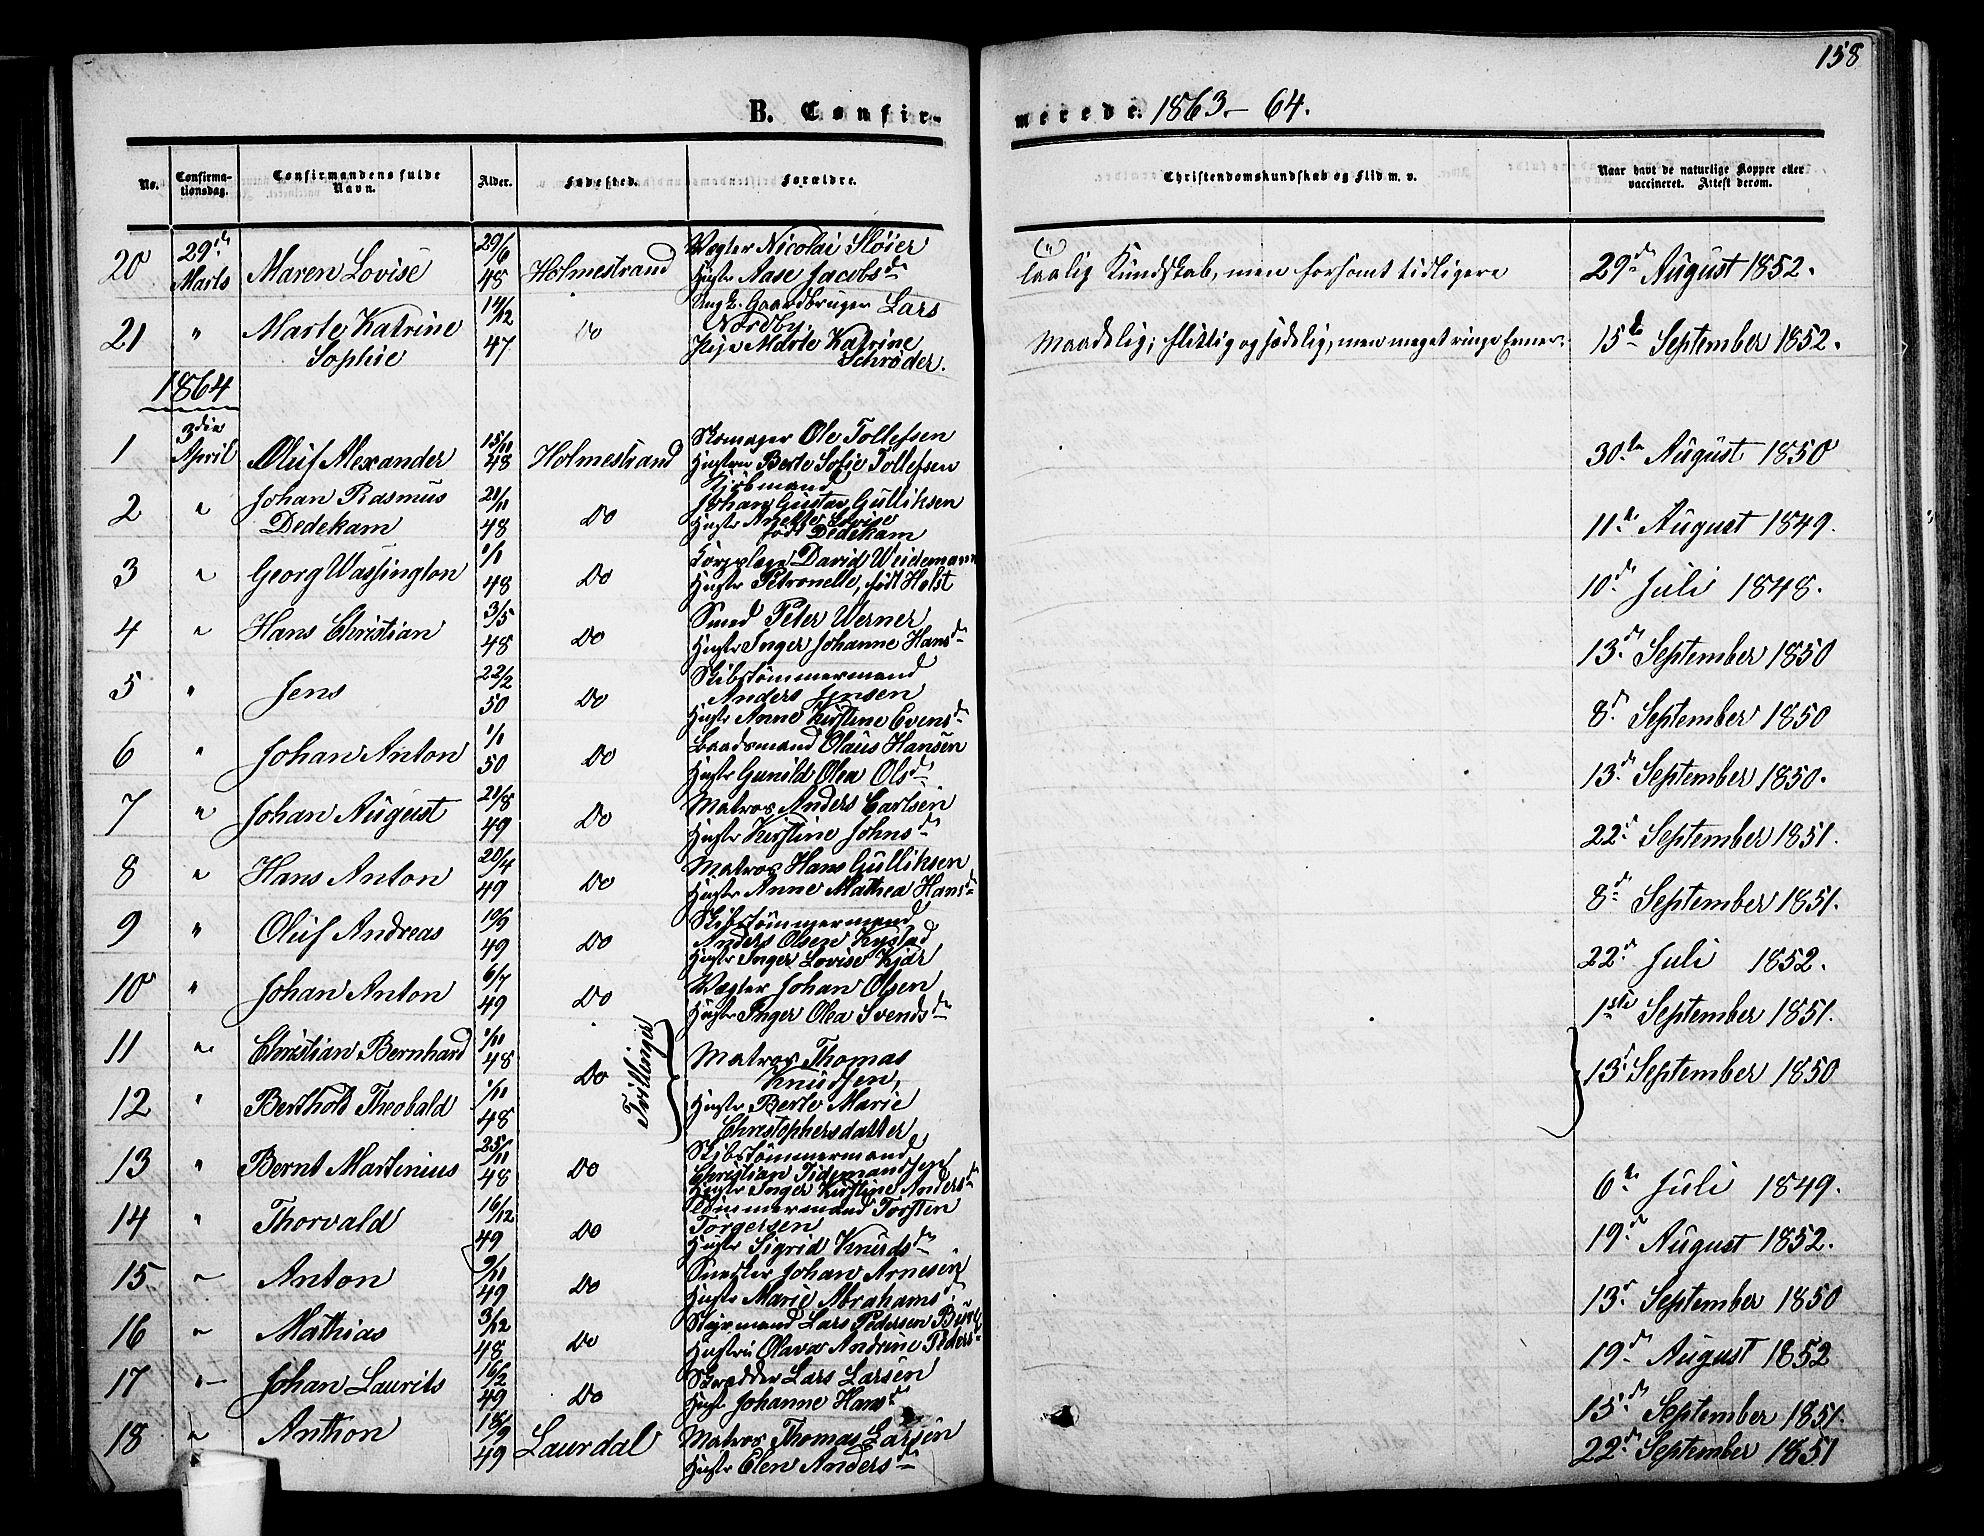 158
B. Confir-
merede. 1863-64.
No.
Confirma-
tionsdag.
Confirmandens fulde
Navn.
Alder.
Fødested.
Forældre.
Christendomskundskab og Flid m. v.
Naar havt de naturlige Kopper eller
vaccineret. Attest derom.
20 29de Marts Maren Lovise 29/6 48 Holmestrand Vægter Nicolai Støier
Hustr Aase Jacobsd.
Taalig Kundskab, men forsømt tidligere 29d August 1852.
21 " Marte Katrine
Sophie 14/12 47 Do Ungk. Gaardbruger Lars
Nordby.
Pige Marte Katrine
Schrøder.
Maadelig; flittig og sædelig, men meget ringe Evner. 15de September 1852.
1864
1 3die April Oluf Alexander 15/11 48 Holmestrand Skomager Ole Tollefsen
Hustru Berte Sofie Tollefsen 30te August 1850
2 " Johan Rasmus
Dedekam 21/11 48 Do Kjöbmand
Johan Gustav Gulliksen
Hustr Anette Lovise
født Dedekam 11te August 1849.
3 " Georg Wassington 1/1 48 Do David Weidemann
Hustr Petronelle, født Holst 10d Juli 1848.
4 " Hans Christian 3/5 48 Do Smed Peter Werner
Hustr Inger Johanne Hansd 13d September 1850
5 " Jens 22/2 50 Do Skibstömmermand
Anders Jensen
Hustr Anne Kirstine Evensd 8d September 1850
6 " Johan Anton 1/1 50 Do Baadsmand Olaus Hansen
Hustr Gunild Olea Olsd 13d September 1850.
7 " Johan August 21/8 49 Do Matros Anders Carlsen
Hustr Kirstine Johnsd 22d September 1851.
8 " Hans Anton 20/4 49 Do Matros Hans Gulliksen
Hustr Anne Mathea Hansd 8d September 1851.
9 " Oluf Andreas 10/9 49 Do Skibstömmermand
Anders Olsen Kystad
Hustr Inger Lovise Kjær 22d Juli 1852.
10 " Johan Anton 6/7 49 Do Vægter Johan Olsen
Hustr Inger Olea Svendsd 1ste September 1851.
11 " Christian Bernhard 1/11 48 Do Tvillinger Matros Thomas
Knudsen, 13d September 1850
12 " Berthold Theobald 1/11 48 Hustr Berte Marie
Christophersdatter
13 " Bernt Martinius 25/11 48 Do Skibstömmermand
Christian Tidemandsen
Hustr Inger Kirstine Andersd 6te Juli 1849.
14 " Thorvald 16/12 49 Do Tömmermand Torsten
Torgersen
Hustr Sigrid Knudsd 19d August 1852.
15 " Anton 9/11 49 Do Snedker Johan Arnesen
Hustr Marie Abrahamsd 13d September 1850
16 " Mathias 3/12 48 Do Styrmand Lars Pedersen
Hustru Olava Andrine Pedersd 19d August 1852
17 " Johan Laurits 16/2 49 Do Skredder Lars Larsen
Hust Johanne Hansd 15d September 1851.
18 " Anthon 18/9 49 Laurdal Matros Thomas Larsen
Hustr Elen Andersd 22d September 1851